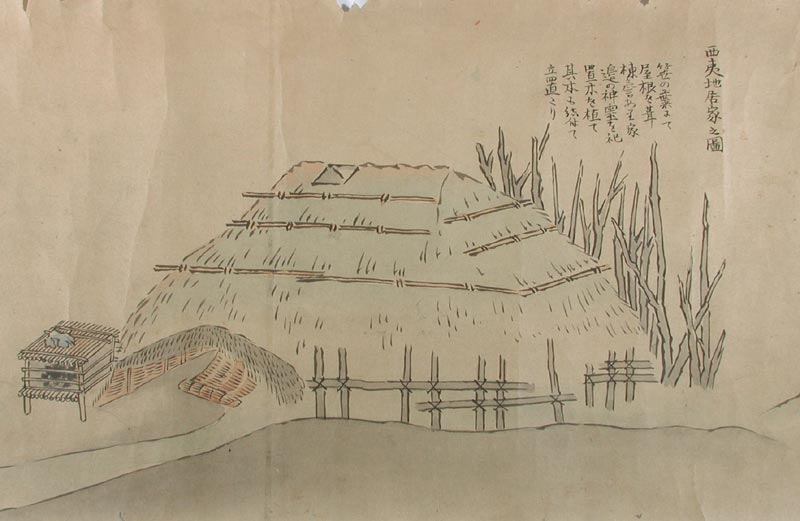 西夷地居家之圖
笹の葉にて
屋根を葺
棟に窓あり家
邊の神靈を祀
置木を植て
其木に結付て
立置なり